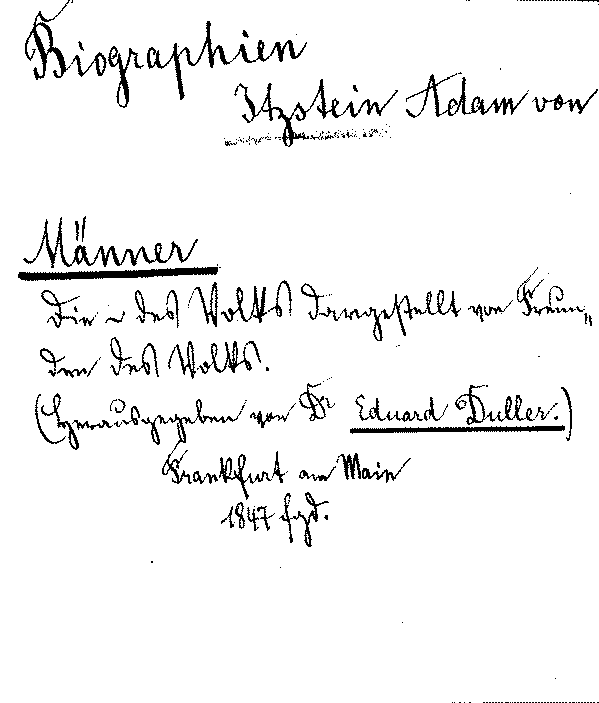 Biographien
Itzstein Adam von
Männer
Die – des Volks dargestellt von Freun„
den des Volks.
(Herausgegeben von Dr Eduard Duller.)
Frankfurt am Main
1847 fgd.